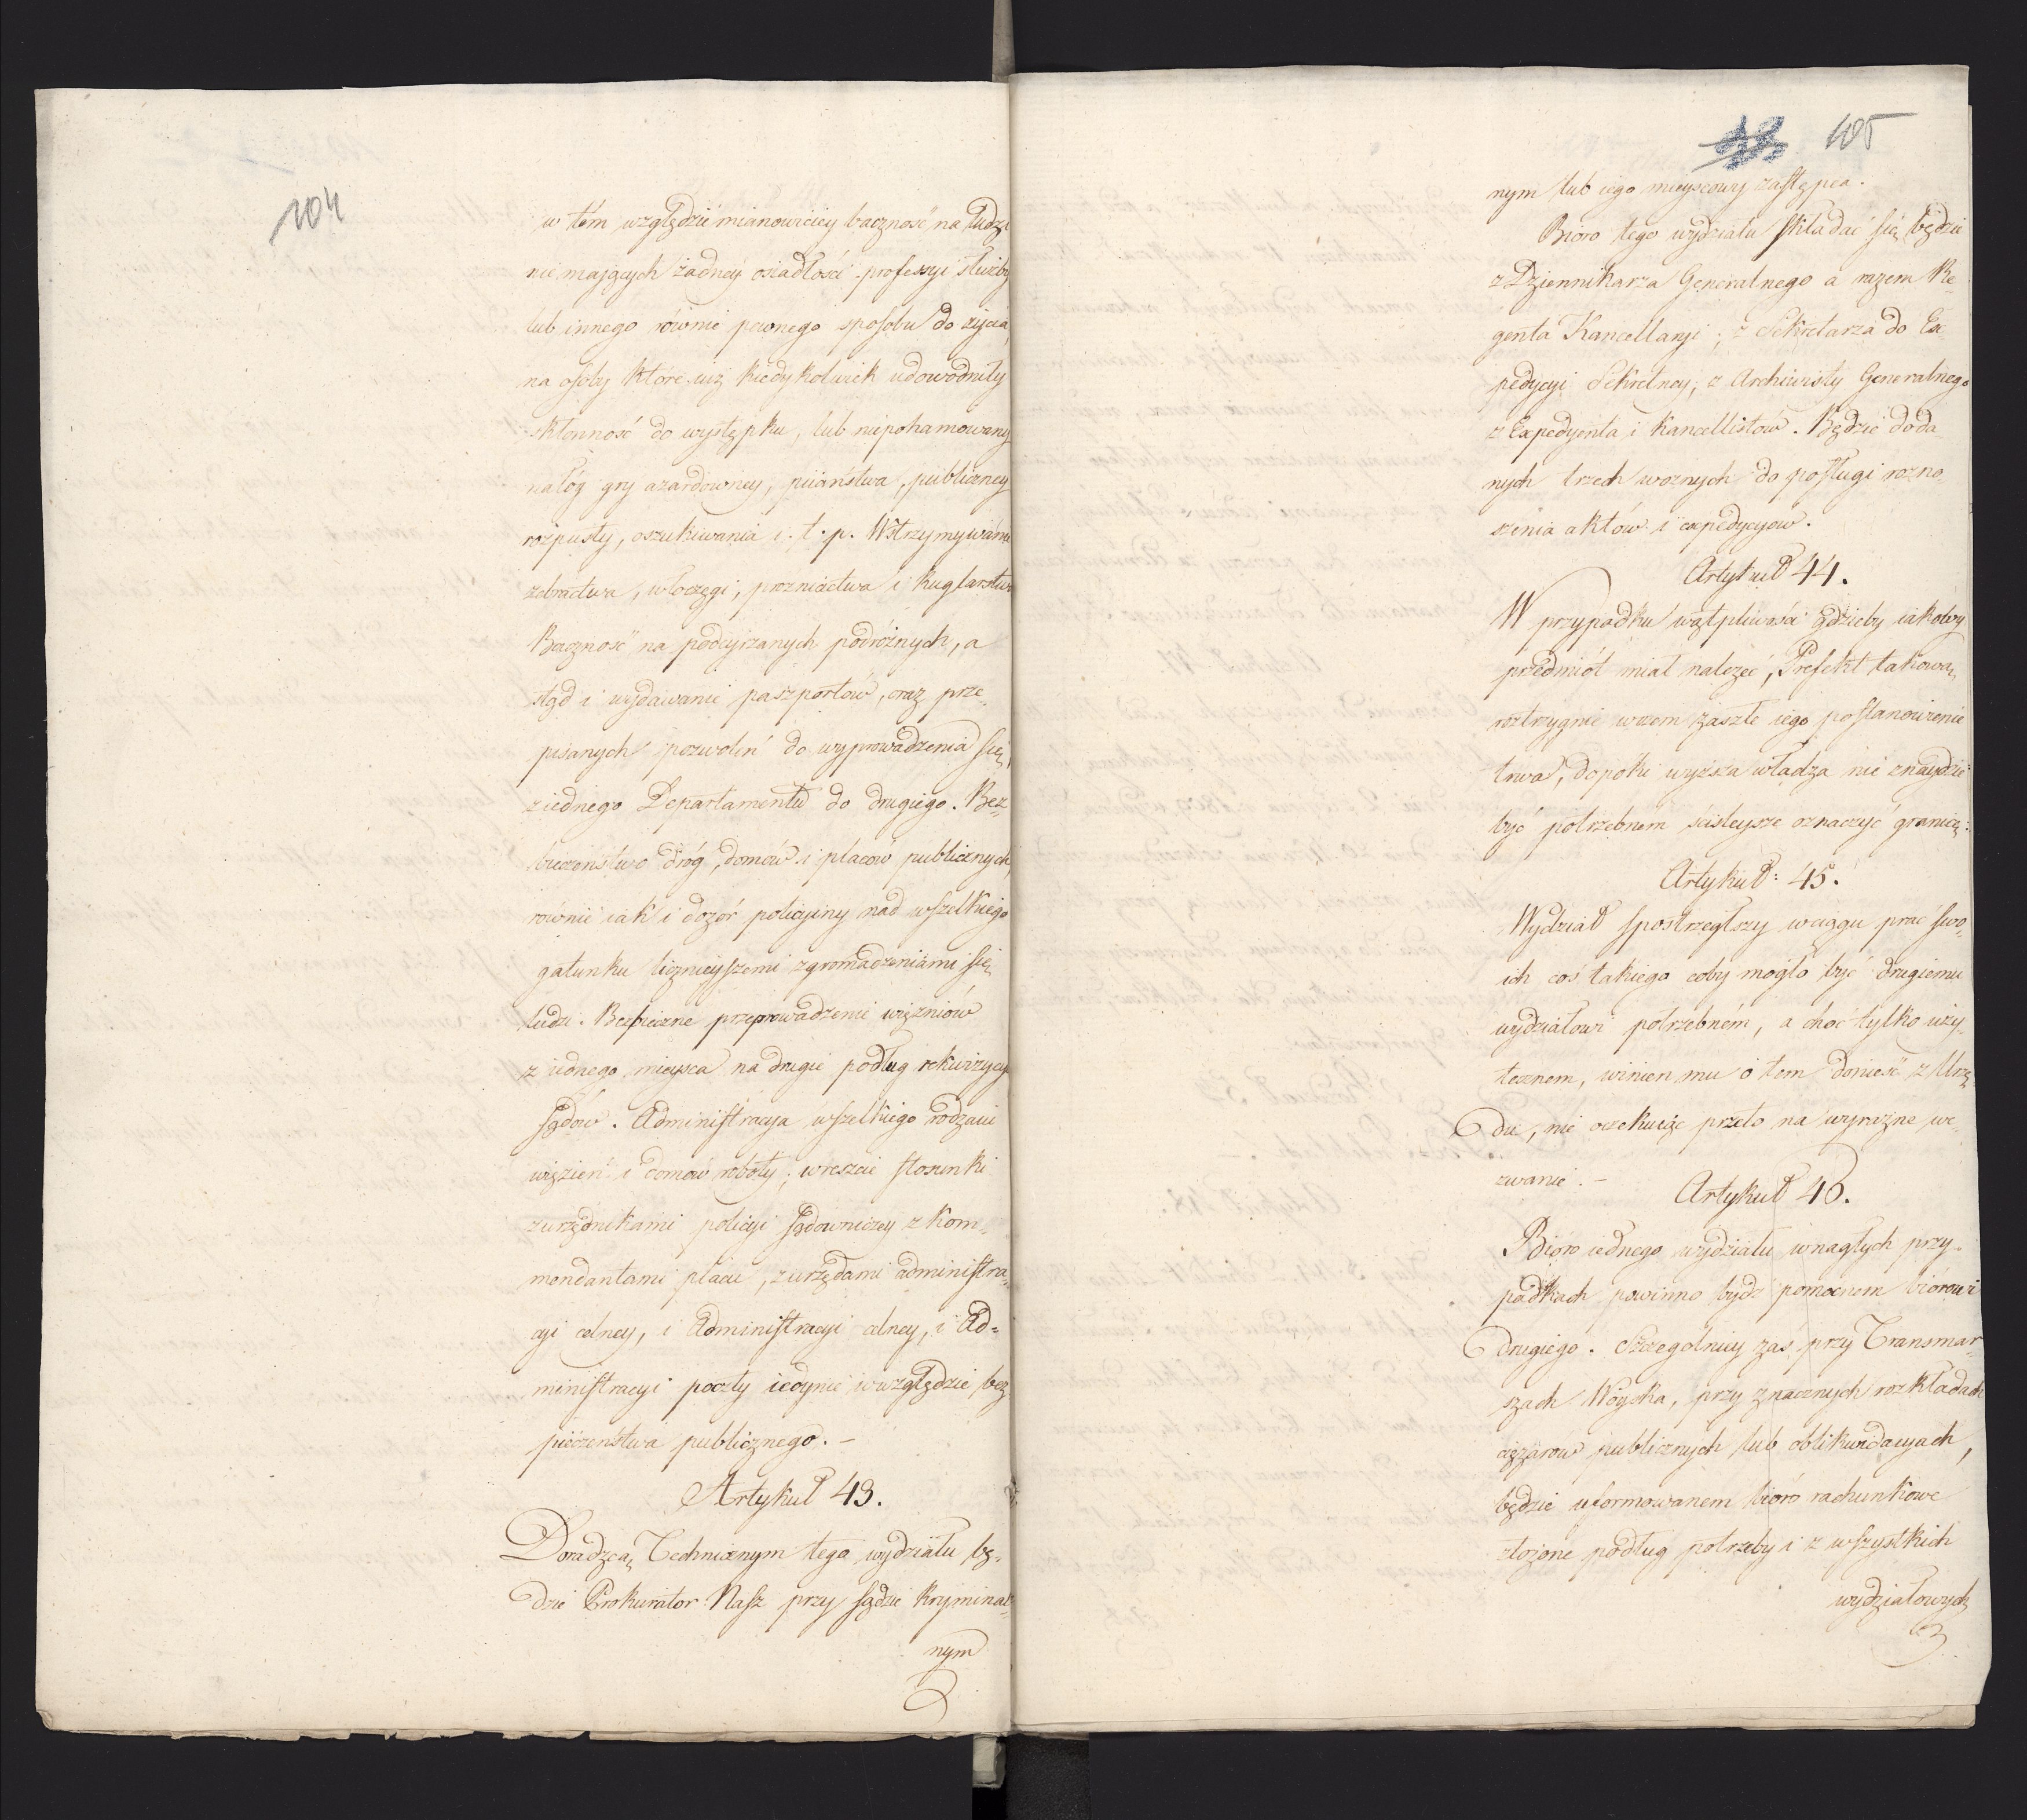 104
w tém względzie mianowiciey baczność na ludzi
nie mających żadney osiadłości professyi służby
lub innego równie pewnego sposobu do życia,
na osoby które iuż kiedykolwiek udowodniły
skłonność do występku, lub niepohamowany
nałóg gry azardowney, piiaństwa, publiczney
rozpusty, oszukiwania i. t. p. Wstrzymywanie
żebractwa, włóczęgi, prozniactwa i kuglarstwa
Baczność na podeyrzanych podróżnych, a
stąd i wydawanie paszportów, oraz prze-
pisanych pozwoleń do wyprowadzenia się,
z iednego Departamentu do drugiego. Bez-
bieczeństwo dróg, domów i placów publicznych,
równie iak i dozór policyiny nad wszelkiego
gatunku licznieyszemi zgromadzeniami się
ludzi. Bespieczne przeprowadzenie więzniów
z iednego mieysca na drugie podług rekwizycyi
sądów. Administracya wszelkiego rodzaiu
więzień i domów roboty; wreszcie stosunki
z urzędnikami policyi sądowniczey z Kom-
mendantami placu, z urzędami administra-
cyi celney, i Administracyi celney, i Ad-
ministracyi poczty iedynie w względzie bez
pieczeństwa publicznego. –
Artykuł 43.
Doradzcą Technicznym tego wydziału bę-
dzie Prokurator Nasz przy sądzie kryminal-
nym
105
nym lub iego mieyscowy zastępca.
Bióro tego wydziału składać się będzie
z Dziennikarza Generalnego a razem Re-
genta Kancellaryi; z Sekretarza do Ex-
pedycyi Sekretney; z Archiwisty Generalnego
z Expedyenta i kancellistów. Będzie doda
nych trzech woznych do posługi rozno
szenia aktów i expedycyów.
Artykuł 44.
W przypadku wątpliwości gdzieby iakowy
przedmiot miał należeć, Prefekt takową
roztrzygnie wrzem zaszłe iego postanowienie
trwa, dopóki wyższa władza nie znaydzie
być potrzebnem ścisleysze oznaczyć granice:
Artykuł: 45.
Wydział spostrzegłszy w ciągu prac swo-
ich coś takiego coby mogło być drugiemu
wydziałowi potrzebném, a choć tylko uży-
tecznem, winien mu o tem donieść z Urzę-
du, nie oczekuiąc przeto na wyrazne we-
zwanie. –
Artykuł 46.
Bióro iednego wydziału w nagłych przy-
padkach powinno bydź pomocnem biórowi
drugiego. Szczegolniey zaś przy Transmar-
szach Woyska, przy znacznych rozkładach
ciężarow publicznych lub oblikwidacyach,
będzie uformowanem bióro rachunkowe
złożone podług potrzeby i z wszystkich
wydziałowych